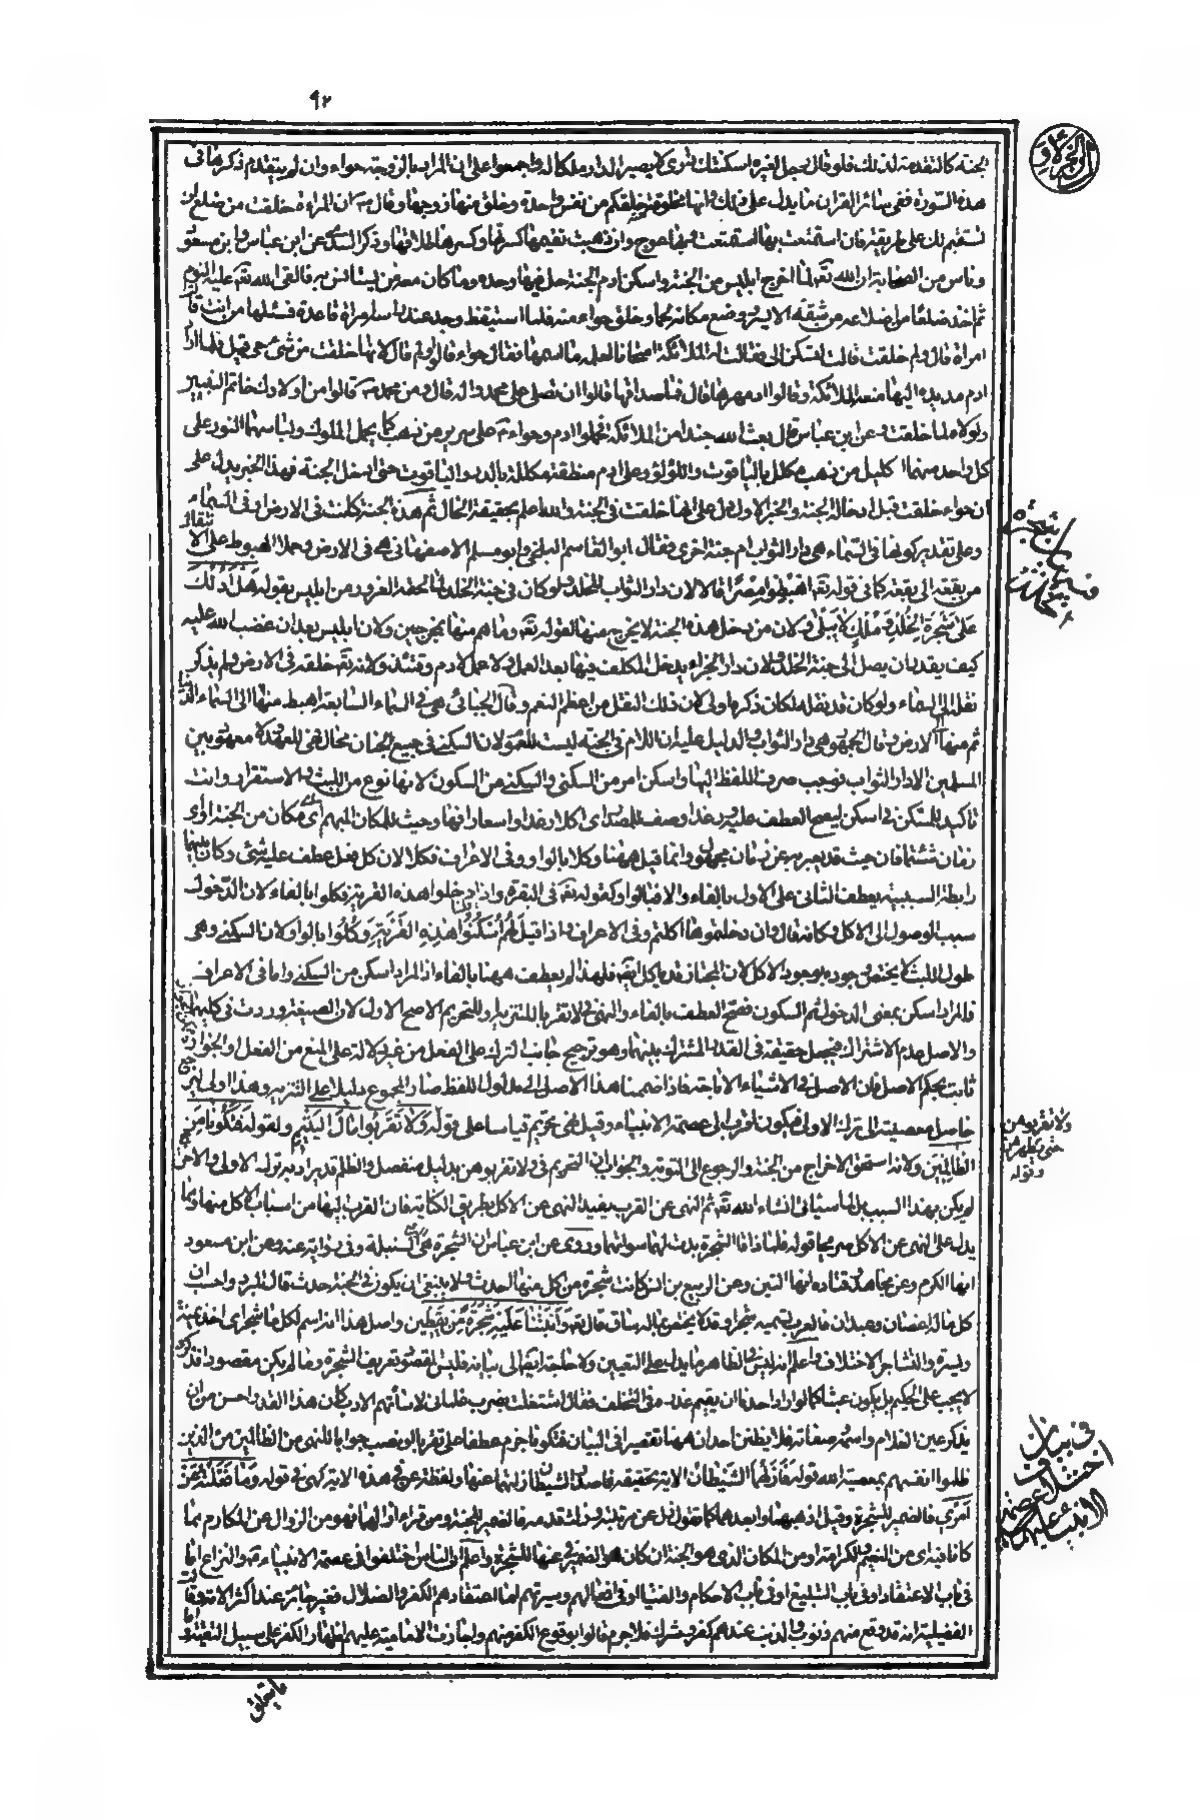 ٩٢
الجزء الاول
هذه السورة ففى سائر القران ما يدل على ذلك وانها مخلوقة خلقكم من نفس واحدة وخلق منها زوجها وقال ان المراة خلقت من ضلع لن
تستقيم لك على طريقة فان استمتعت بها استمتعت بها وبها عوج وان ذهبت تقيمها كسرتها وكسرها طلاقها وذكر السدى عن ابن عباس وابن مسعود
وناس من الصحابة ان الله تعالى لما اخرج ابليس من الجنة واسكن ادم الجنة حل فيها وحده وما كان معه من يستأنس به فالقى الله تعالى عليه النوم
ثم اخذ ضلعا من اضلاعه من شقه الايسر ووضع مكانه لحما وخلق حواء منه فلما استيقظ وجد عند راسه امراة قاعدة فسئلها من انت
امراة قال ولم خلقت قالت لتسكن الى فقالت له الملائكة ما اسمها فقال حواء قالوا ولم قال لانها خلقت من شئ حى فلما اراد
ادم مد يده اليها منعه الملائكة وقالوا اد مهرها قال فما صداقها قالوا ان تصلى على محمد واله قال ومن محمد قالوا من اولادك خاتم النبيين
ولولاه لما خلقت وعن ابن عباس قال بعث الله جندا من الملائكة فحملوا ادم وحواء على سرير من ذهب كما يحمل الملوك ولباسهما النور على
كل واحد منهما اكليل من ذهب مكلل بالياقوت واللؤلؤ وعلى ادم منطقة مكللة بالدر والياقوت حتى ادخل الجنة فهذا الخبر يدل على
ان حواء خلقت قبل ادخاله الجنة والخبر الاول دل على انها خلقت فى الجنة والله اعلم بحقيقة الحال ثم هذه الجنة كانت فى الارض او فى السماء
وعلى تقدير كونها فى السماء هى دار الثواب ام جنة اخرى فقال ابو القاسم البلخى وابو مسلم الاصفهانى هى فى الارض وحملا الهبوط على الانتقال
من بقعة الى بقعة كما فى قوله تعالى اهبطوا مصرا قالا لان دار الثواب للخلد ولو كان فى جنة الخلد لما لحقه الغرور من ابليس بقوله هل ادلك
على شجرة الخلد وملك لا يبلى ولان من دخل هذه الجنة لا يخرج منها لقوله تعالى وما هم منها بمخرجين ولان ابليس بعد ان غضب الله عليه
كيف يقدر ان يصل الى جنة الخلد ولان دار الجزاء يدخل المكلف فيها بعد العمل ولا عمل لادم وقتئذ ولانه تعالى خلقه فى الارض ولم يذكر
نقله الى السماء ولو كان قد نقله لكان ذكره اولى لان ذلك النقل من اعظم النعم وقال الجبائى هى فى السماء السابعة اهبط منها الى السماء الدنيا
ثم منها الى الارض وقال الجمهور هى دار الثواب والدليل عليه ان اللام فى الجنة ليست للعموم لان السكنى فى جميع الجنان محال فهى للعهد ولا معهود بين
المسلمين الا دار الثواب فوجب صرف اللفظ اليها واسكن امر من السكنى والسكنى من السكون لانها نوع من اللبث والاستقرار وانت
تاكيد للمستكن فى اسكن ليصح العطف عليه ورغدا وصف للمصدر اى اكلا رغدا واسعا رافها وحيث للمكان المبهم اى اى مكان من الجنة او اى
زمان شئتما فان حيث قد يعبر به عن زمان مجهول وانما قيل ههنا وكلا بالواو وفى الاعراف فكلا لان كل فعل عطف عليه شئ وكان بينهما
رابطة السببية يعطف الثانى على الاول بالفاء والا فبالواو كقوله تعالى فى البقرة واذ قلنا ادخلوا هذه القرية فكلوا بالفاء لان الدخول
سبب الوصول الى الاكل فكانه قال وان دخلتموها اكلتم وفى الاعراف واذ قيل لهم اسكنوا هذه القرية وكلوا بالواو لان السكنى وهى
طول اللبث لا يختص وجوده بوجود الاكل لان المجتاز قد ياكل ايضا فلهذا لم يعطف ههنا بالفاء اذ المراد اسكن من السكنى واما فى الاعراف
فالمراد اسكن بمعنى ادخل ثم السكون فصح العطف بالفاء والنهى فى لا تقربا للتنزيه او للتحريم الاصح الاول لان الصيغة وردت فى كليهما
والاصل عدم الاشتراك فيجعل حقيقة فى القدر المشترك بينهما وهو ترجيح جانب الترك على الفعل من غير دلالة على المنع من الفعل او الجواز
ثابت بحكم الاصل فان الاصل فى الاشياء الاباحة فاذا ضممنا هذا الاصل الى مدلول اللفظ صار المجموع دليلا على التنزيه وهذا اولى
حاصل معصيته الى ترك الاولى فيكون اقرب الى عصمة الانبياء وقيل نهى تحريم قياسا على قوله ولا تقربوا مال اليتيم ولقوله فتكونا من
الظالمين ولانه استحق الاخراج من الجنة والرجوع الى التوبة والجواب ان التحريم فى لا تقربوهن بدليل منفصل والظلم قد يراد به ترك الاولى والاخراج
لم يكن بهذا السبب بل لما سيأتى انشاء الله تعالى ثم النهى عن القرب يفيد النهى عن الاكل بطريق الكناية فان القرب اليها من اسباب الاكل منها
يدل على النهى عن الاكل صريحا قوله فلما ذاقا الشجرة بدت لهما سوآتهما وروى عن ابن عباس ان الشجرة هى السنبلة وفى رواية عنه وعن ابن مسعود
انها الكرم وعن مجاهد وقتادة انها التين وعن الربيع بن انس كانت شجرة من اكل منها احدث ولا ينبغى ان يكون فى الجنة حدث قال المبرد واحسب ان
كل ما له اغصان وعيدان فالعرب تسميه شجرا وقد لا يختص بما له ساق قال تعالى وانبتنا عليه شجرة من يقطين واصل هذا انه اسم لكل ما شجر اى اخذ يمنة
ويسرة والتشاجر الاختلاف واعلم انه ليس فى الظاهر ما يدل على التعيين ولا حاجة ايضا الى بيانه فليس المقصود تعريف الشجرة وما لم يكن مقصودا
لا يجب على الحكيم بل يكون عبثا كما لو اراد احدنا ان يقيم عذره فى التخلف فقال اشتغلت بضرب غلمانى لاساءتهم الادب كان هذا القدر احسن من ان
يذكر عين الغلام واسمه وصفاته فلا يظنن احد ان ههنا تقصيرا فى البيان فتكونا جزم عطفا على تقربا او نصب جوابا للنهى من الظالمين من الذين
ظلموا انفسهم بمعصية الله قوله فازلهما الشيطان الاية تحقيقه فاصدر الشيطان زلتهما عنها ولفظة عن فى هذه الاية كهى فى قوله وما فعلته عن
امرى فالضمير للشجرة وقيل اذهبهما وابعدهما كما تقول زل عن مرتبته وزلت قدمه فالضمير للجنة ومن قرأ ازالهما فهو من الزوال عن المكان
كانا فيه اى من النعيم والكرامة او من المكان الذى هو الجنة ان كان الضمير فى عنها للشجرة واعلم ان الناس اختلفوا فى عصمة الانبياء والنزاع اما
فى باب الاعتقاد او فى باب التبليغ او فى باب الاحكام والفتيا او فى افعالهم وسيرتهم اما اعتقادهم الكفر والضلال فغير جائز عند اكثر الامة وقالت
الفضيلية انه قد وقع منهم ذنوب والذنب عندهم كفر وشرك فلا جرم قالوا بوقوع الكفر منهم واجازت الامامية عليهم اظهار الكفر على سبيل التقية اما
ما يتعلق
ولا تقربوهن
حتى يطهرن
وقوله
فى بيان
اختلاف
عصمة
الانبياء عليهم